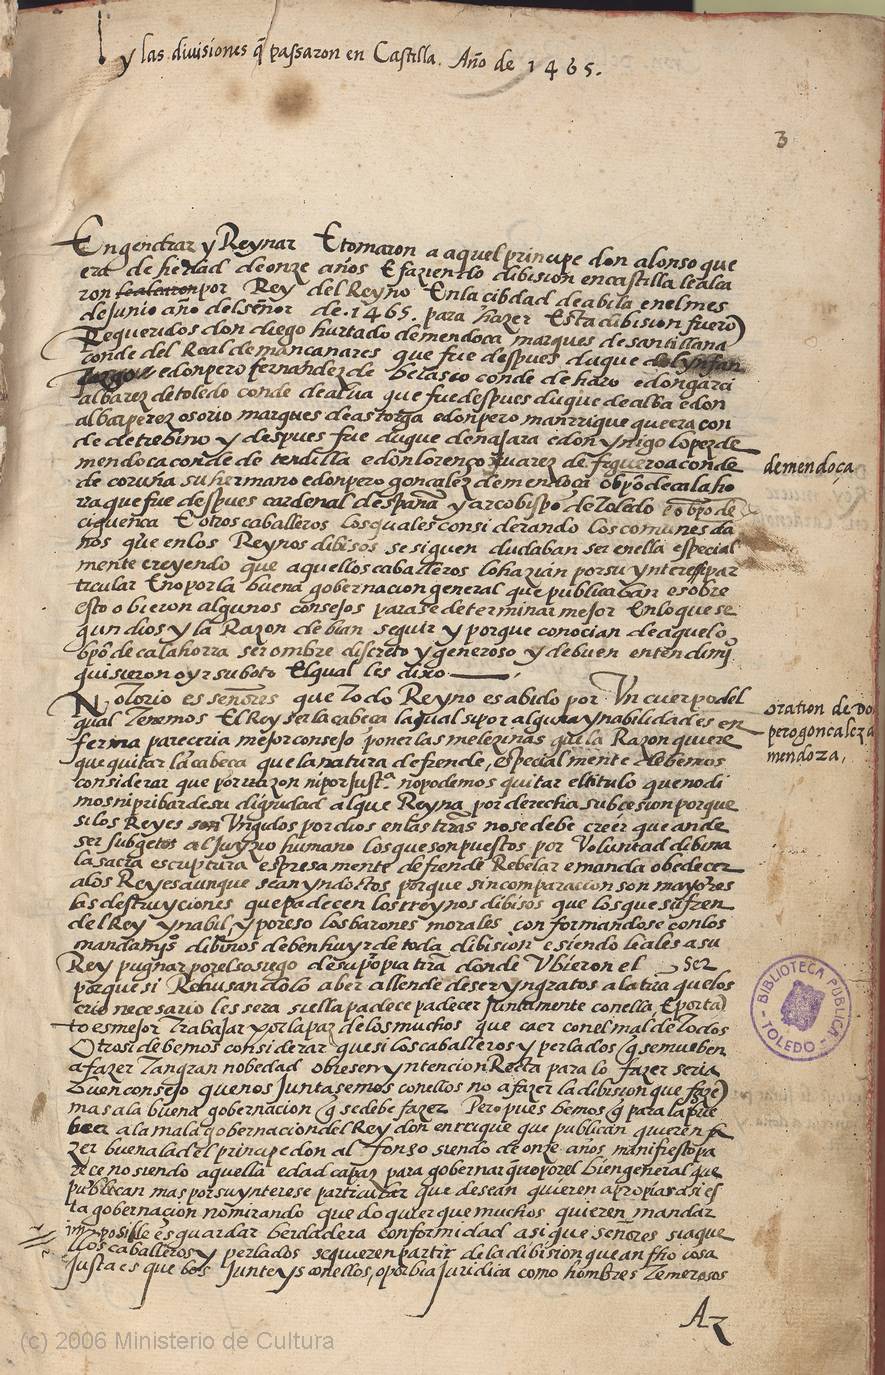 y las diuisiones q̃ passaron en Castilla. Año de 1465.
3
Engendrar y Reynar Etomaron a aquel principe don alonso que
era de hedad de onze años E faziendo dibision en castilla le alca
ron por Rey del Reyno En la cibdad de abila en el mes
de Junio año del señor de .1465. para hazer Esta dibision fuerõ
Requeridos don diego hurtado de mendoca marques de santillana
conde del Real de mancanares que fue despues duque
e don pero fernandez de belasco conde de haro e don garci
albarez de toledo conde de alua que fue despues duque de alba e don
albar perez osorio marques de astorga e don pero manrrique que era con
de de trebino y despues fue duque de najara e don ynigo lopez de
mendoca conde de tendilla e don lorenço xuarez de figueroa conde
de mendoça
de coruña su hermano e don pero goncalez de mendoça obpõ de calaho
rra que fue despues cardenal despaña y arcobispo de toledo e obpõ de
ciguenca E otros caballeros los quales considerando los comunes da
ños que en los Reynos dibisos se siguen dudaban ser en ella especial
mente creyendo que aquellos caballeros lo hazian por su ynteresse par
ticular E no por la buena gobernacion general que publicaban e sobre
esto obieron algunos consejos para se determinar mejor En lo que se
gun dios y la Razon debian seguir y porque conocian de aquel o
bpõ de calahorra ser ombre discreto y generoso y de buen entendimiº
quisieron oyr su boto El qual les dixo
Notorio es señores que todo Reyno es abido por Vn cuerpo del
oration de Do
pero goncalez d
mendoza,
qual Tenemos El Rey ser la cabeça la qual si por alguna ynabilidad es en
ferma pareceria mejor consejo poner las melezinas que la Razon quiere
que quitar la cabeca que la natura defiende, especial mente debemos
considerar que por razon ni por Justª no podemos quitar el titulo que no di
mos ni pribar de su dignidad al que Reyna por derecha subcesion porque
si los Reyes son Vngidos por dios en las tr̃as no se debe creer que ande
ser subgetos al juyzio humano los que son puestos por Voluntad dibina
la sacra escruptura espresa mente defiende Rebelar e manda obedecer
a los Reyes aunque sean yndoctos porque sin comparacion son mayores
las destruyciones que padecen los rreynos dibisos que los que sufren
del Rey ynabil y por eso los barones morales conformandose con los
mandamiºs dibinos deben huyr de toda dibision e siendo leales a su
Rey pugnar por el sosiego de su propia tr̃a donde Vbieron el ser
porque si Rehusandolo aber allende de ser yngratos a la tr̃a que los
crio necesario les sera si ella padece padecer Juntamente con ella E por ta
to es mejor trabajar por la paz de los muchos que caer con el mal de todos
Otrosi debemos considerar que si los caballeros y perlados q̃ se mueben
a fazer tan gran nobedad obiesen yntencion Recta para lo fazer seria
buen consejo que nos Juntasemos con ellos no a fazer la dibision que fazẽ
mas a la buena gobernacion q̃ se debe fazer Pero pues bemos q̃ para la
a la mala gobernacion del Rey don enrrique que publican quieren fa
zer buena la del principe don alfonso siendo de onze años manifiesto pa
rece no siendo aquella edad capaz para gobernar que por el bien general que
publican mas por su ynterese particular que desean quieren apropiar asi es
ta gobernacion no mirando que do quier que muchos quieren mandar
imposible es guardar berdadera conformidad asi que señores si a que
llos caballeros y perlados se quieren partir de la dibision que an fho cosa
justa es que bos Junteys con ellos, o por bia Juridica como hombres Temerosos
A2
BIBLIOTECA PUBLICA
- TOLEDO -
(c) 2006 Ministerio de Cultura